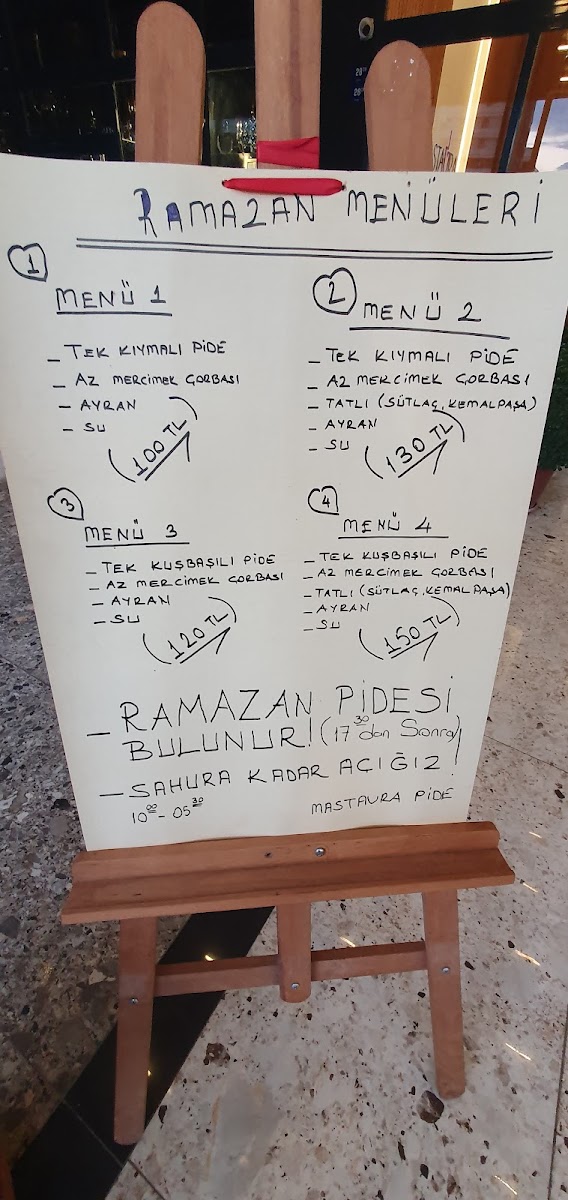 RAMAZAN MENÜLERİ
1
MENÜ 1
- TEK KIYMALI PİDE
- AZ MERCİMEK ÇORBASI
- AYRAN
- SU
(100 TL)
2
MENÜ 2
- TEK KIYMALI PİDE
- AZ MERCİMEK ÇORBASI
- TATLI (SÜTLAÇ, KEMALPAŞA)
- AYRAN
- SU
(130 TL)
3
MENÜ 3
- TEK KUŞBAŞILI PİDE
- AZ MERCİMEK ÇORBASI
- AYRAN
- SU
(120 TL)
4
MENÜ 4
- TEK KUŞBAŞILI PİDE
- AZ MERCİMEK ÇORBASI
- TATLI (SÜTLAÇ, KEMALPAŞA)
- AYRAN
- SU
(150 TL)
- RAMAZAN PİDESİ
BULUNUR! (17³⁰ dan Sonra)
- SAHURA KADAR AÇIĞIZ!
10⁰⁰ - 05³⁰
MASTAURA PİDE